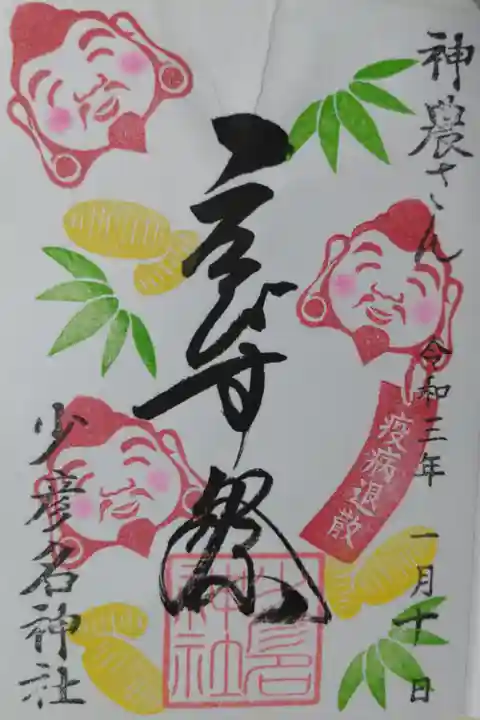 神農さん
令和三年 一月十一日
疫病退散
ゑびす祭
少彦名神社
少彦名
神社